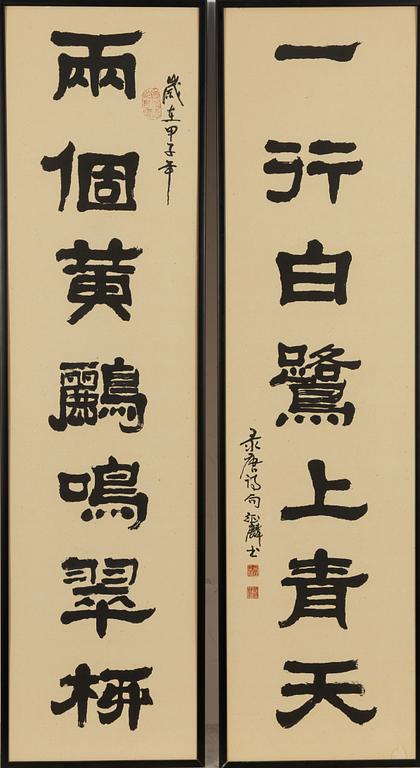 兩個黄鸝鳴翠柳
歲在甲子年
一行白鷺上青天
录唐诗句麟书